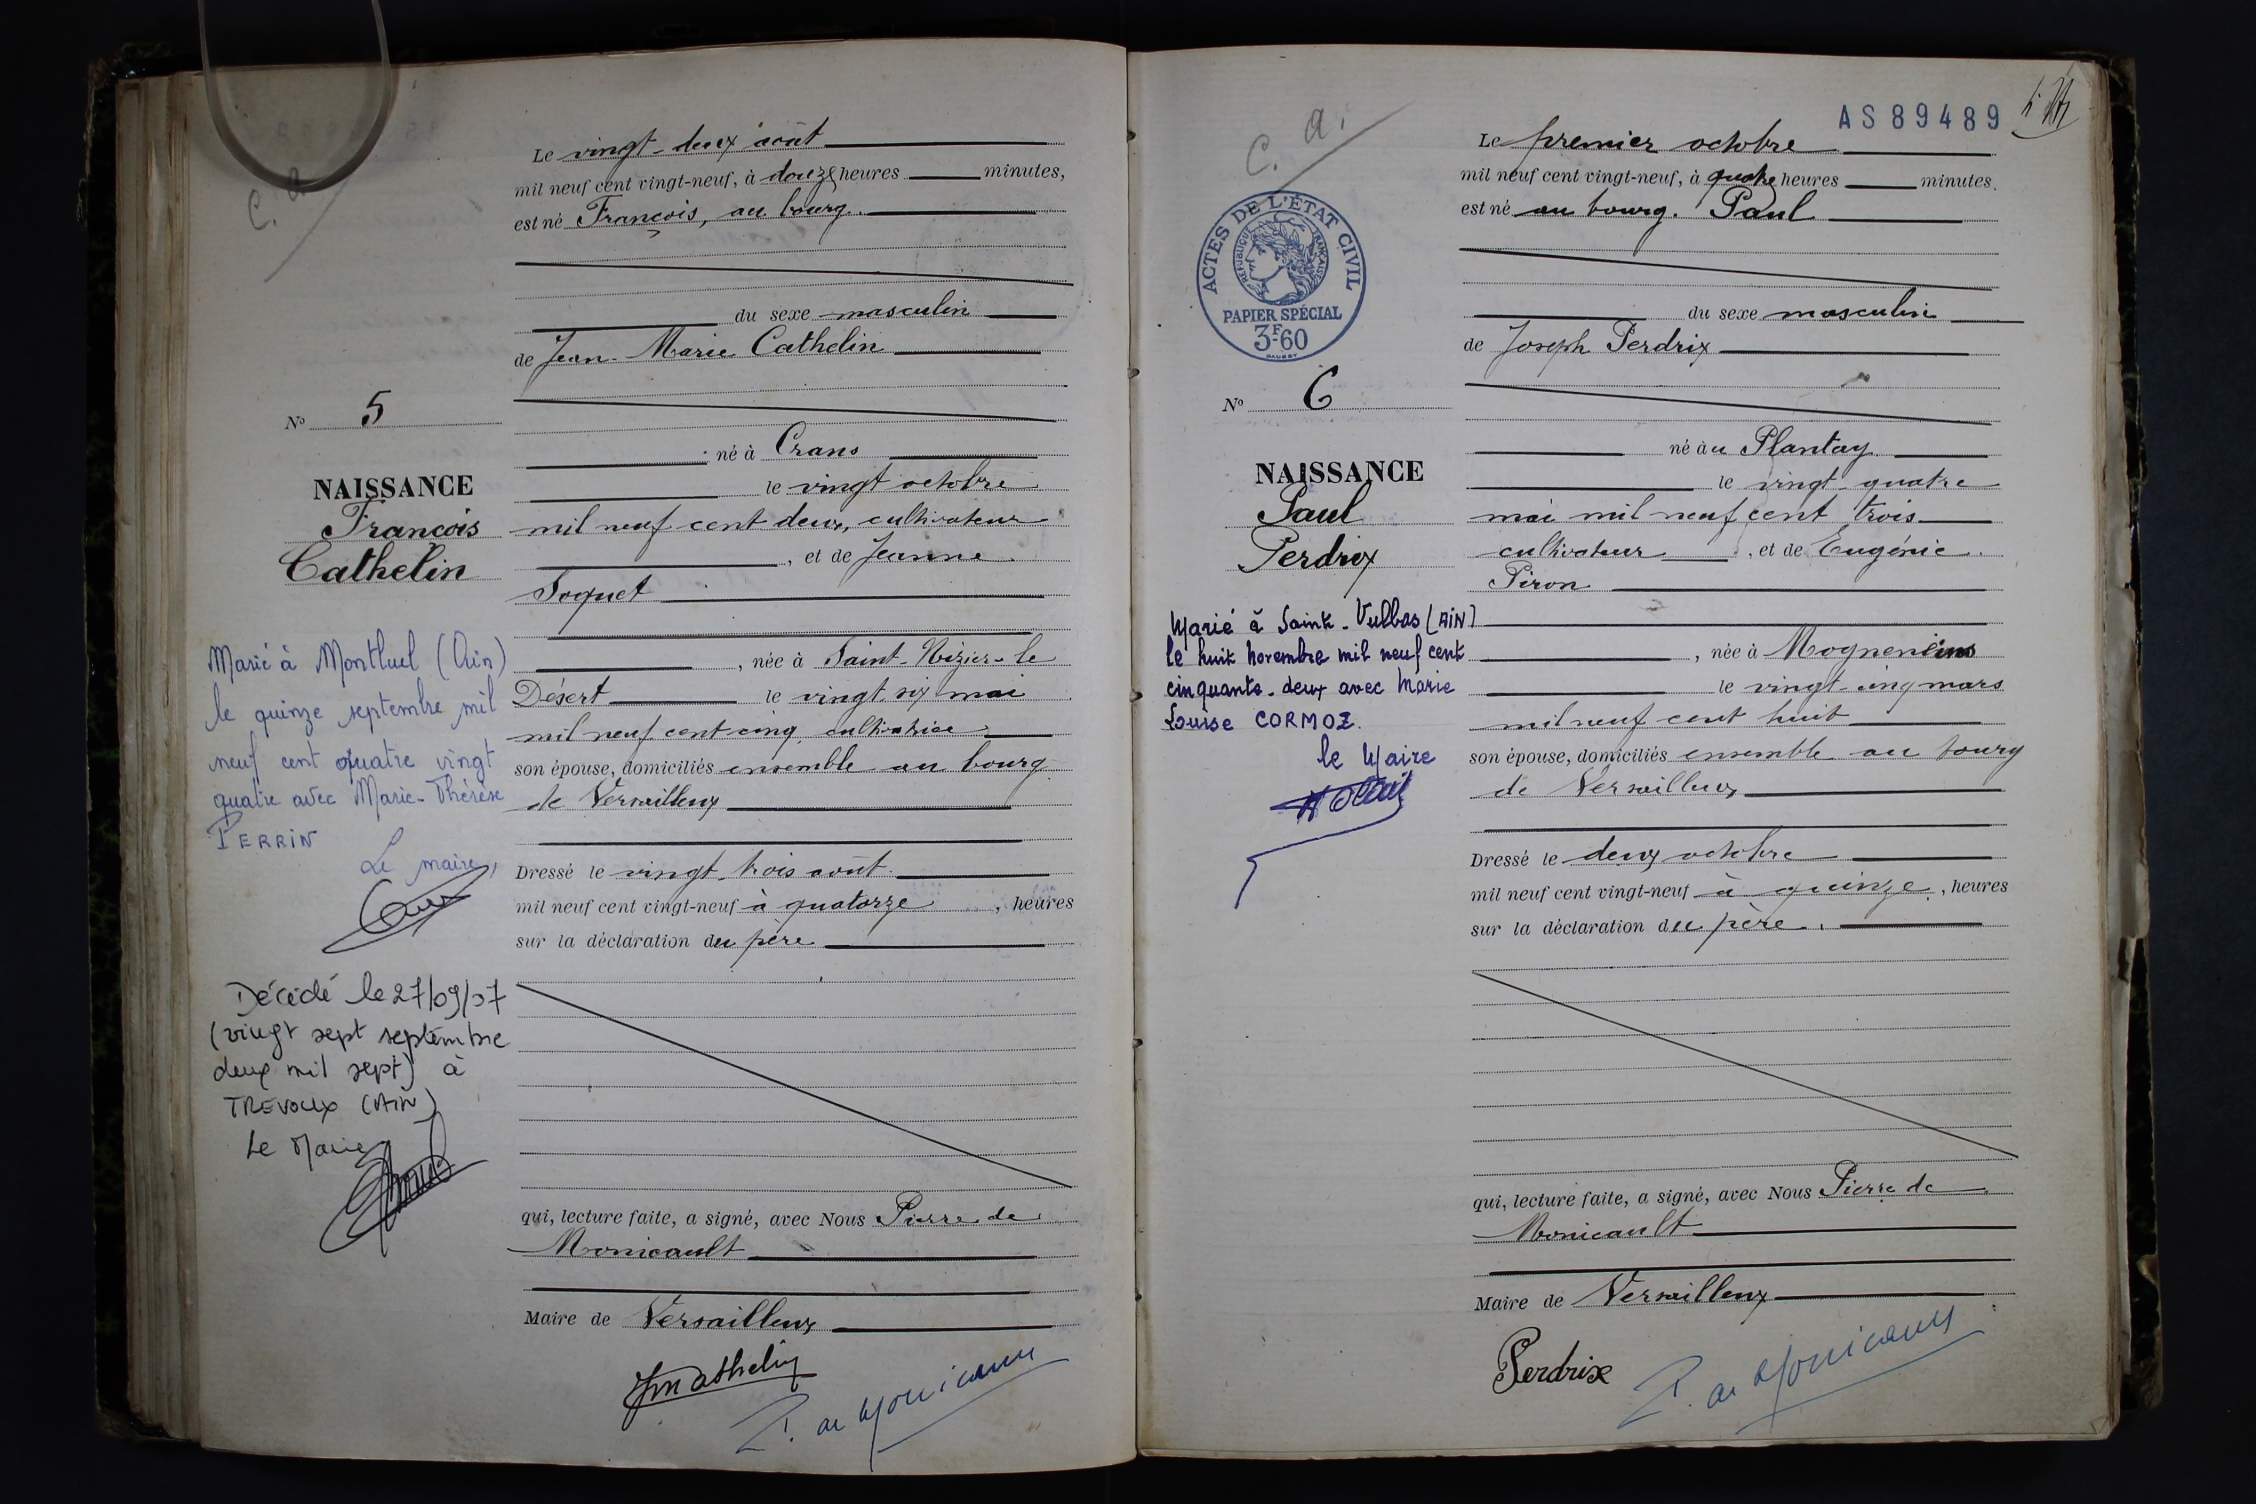 C. a
Le vingt-deux août
mil neuf cent vingt-neuf, à douze heures minutes,
est né François, au bourg.
du sexe masculin
de Jean-Marie Cathelin
né à Crans
le vingt octobre
mil neuf cent deux, cultivateur
, et de Jeanne
Soquet
, née à Saint-Nizier-le
Désert le vingt six mai
mil neuf cent cinq cultivatrice
son épouse, domiciliés ensemble au bourg
de Versailleux
Dressé le vingt-trois août
mil neuf cent vingt-neuf à quatorze , heures
sur la déclaration du père
qui, lecture faite, a signé, avec Nous Pierre de
Monicault
Maire de Versailleux
P. de Monicault
No 5
NAISSANCE
François
Cathelin
Marié à Montluel (Ain)
le quinze septembre mil
neuf cent quatre vingt
quatre avec Marie-Thérèse
PERRIN
Le maire,
Décédé le 27/09/07
(vingt sept septembre
deux mil sept) à
TREVOUX (AIN)
Le Maire
AS89489
C. a.
ACTES DE L'ÉTAT CIVIL
RÉPUBLIQUE FRANÇAISE
PAPIER SPÉCIAL
3F60
Le premier octobre
mil neuf cent vingt-neuf, à quatre heures minutes.
est né au bourg. Paul
du sexe masculin
de Joseph Perdrix
né au Plantay
le vingt-quatre
mai mil neuf cent trois
cultivateur , et de Eugénie
Piron
, née à Mogneneins
le vingt-cinq mars
mil neuf cent huit
son épouse, domiciliés ensemble au bourg
de Versailleux
Dressé le deux octobre
mil neuf cent vingt-neuf à quinze , heures
sur la déclaration du père.
qui, lecture faite, a signé, avec Nous Pierre de
Monicault
Maire de Versailleux
Perdrix P. de Monicault
No 6
NAISSANCE
Paul
Perdrix
Marié à Saint-Vulbas (AIN)
le huit novembre mil neuf cent
cinquante-deux avec Marie
Louise CORMOZ.
le Maire